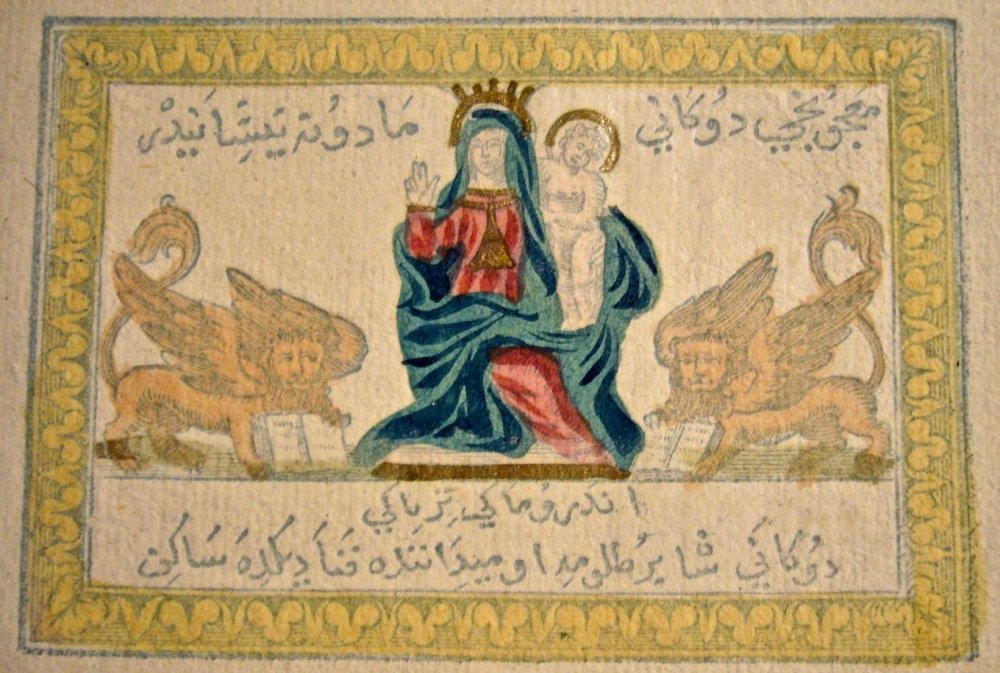 معجونجي دوُكَانيِ مَادوُنه تيتسِيَانيدْر
اندروُماكيِ ترياكيِ
دوُكَانيِ شَا يرطلومداو ميدَاننده فنَاديكدهَ سَاكن